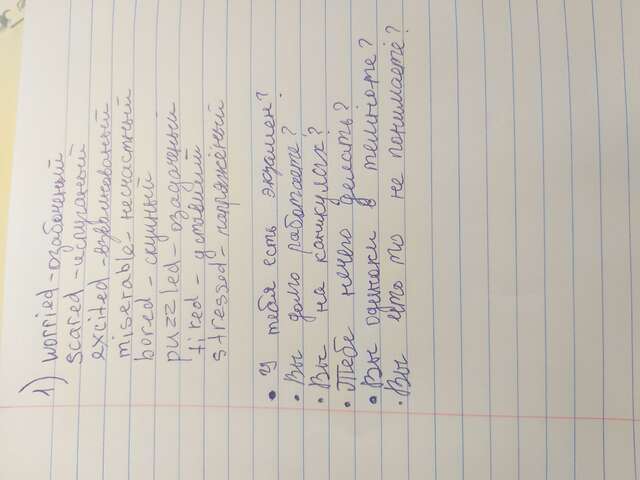 1) worried - озабоченный
scared - испуганый
excited - взволнованый
miserable - несчастный
bored - скучный
puzzled - озадаченый
tired - уставший
stressed - напряжёный
• У тебя есть экзамен?
• Вы долго работаете?
• Вы на каникулах?
• Тебе нечего делать?
• Вы одиноки в темноте?
• Вы что то не понимаете?